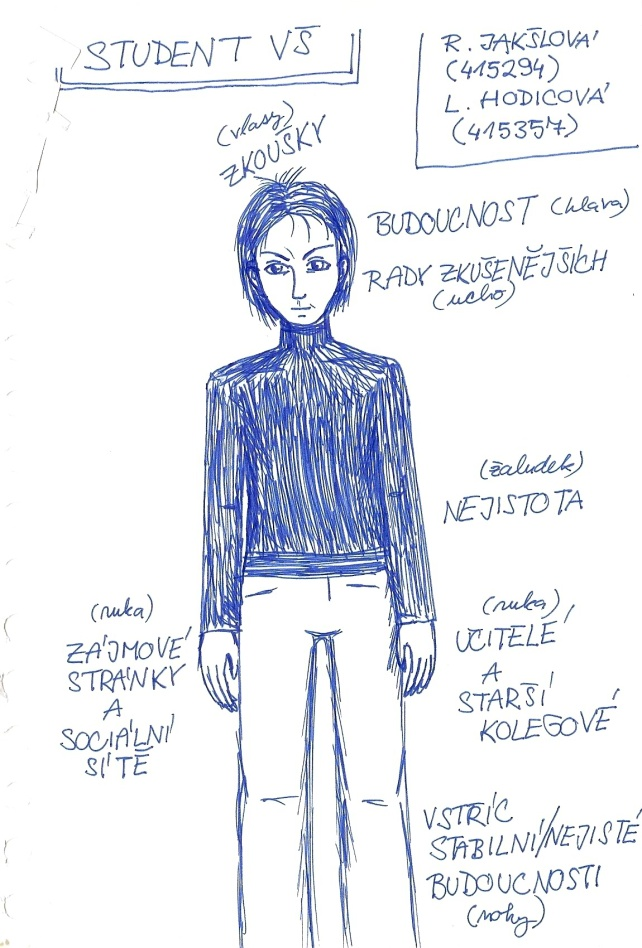 STUDENT VŠ
R. JAKŠLOVÁ
(415294)
L. HODICOVÁ
(415357)
(vlasy)
ZKOUŠKY
BUDOUCNOST (hlava)
RADY ZKUŠENĚJŠÍCH
(ucho)
(žaludek)
NEJISTOTA
(ruka)
ZÁJMOVÉ
STRÁNKY
A
SOCIÁLNÍ
SÍTĚ
(ruka)
UČITELÉ
A
STARŠÍ
KOLEGOVÉ
VSTŘÍC
STABILNÍ/NEJISTÉ
BUDOUCNOSTI
(nohy)